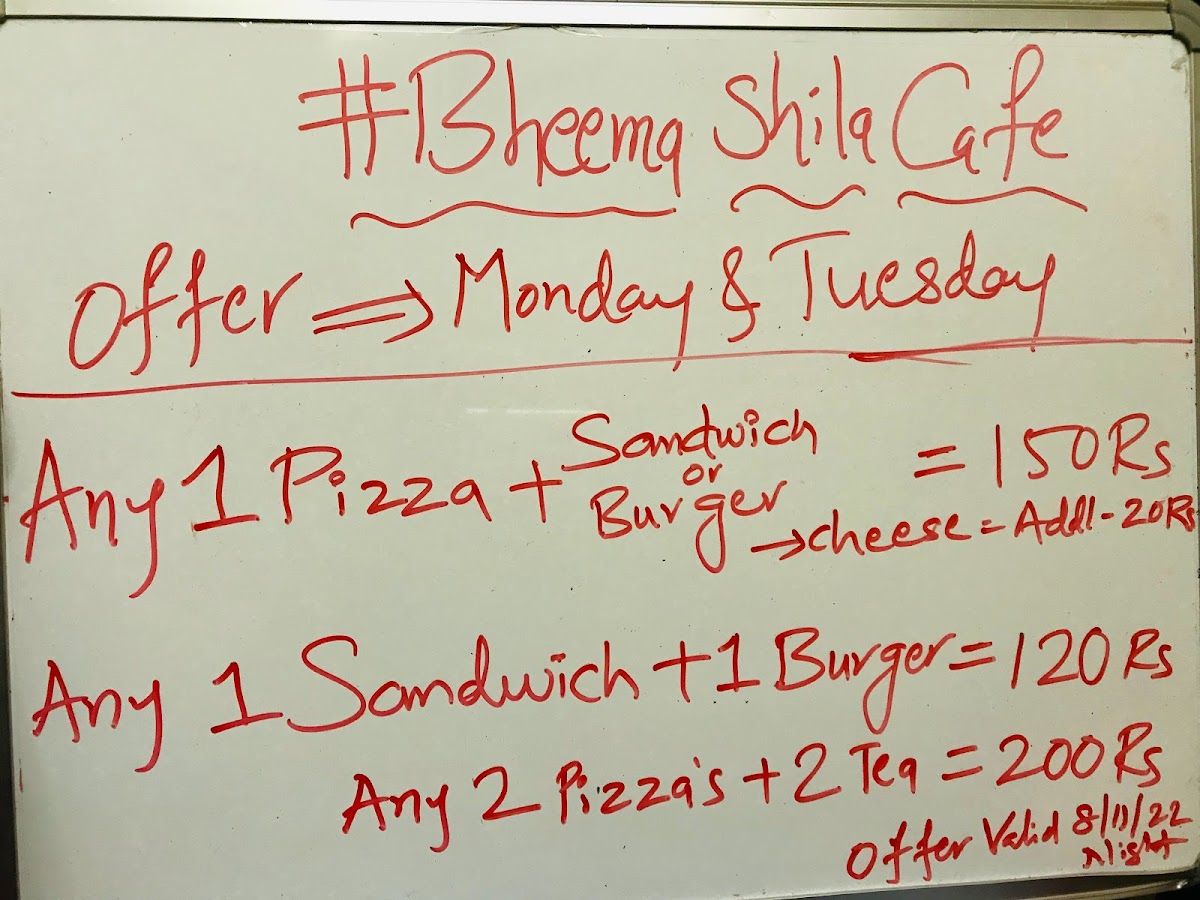 #Bheema Shila Cafe
Offer ⇒ Monday & Tuesday
Any 1 Pizza + Sandwich or Burger = 150 Rs
→ cheese = Addl - 20 Rs
Any 1 Sandwich + 1 Burger = 120 Rs
Any 2 Pizza's + 2 Tea = 200 Rs
Offer Valid 8/11/22
Night